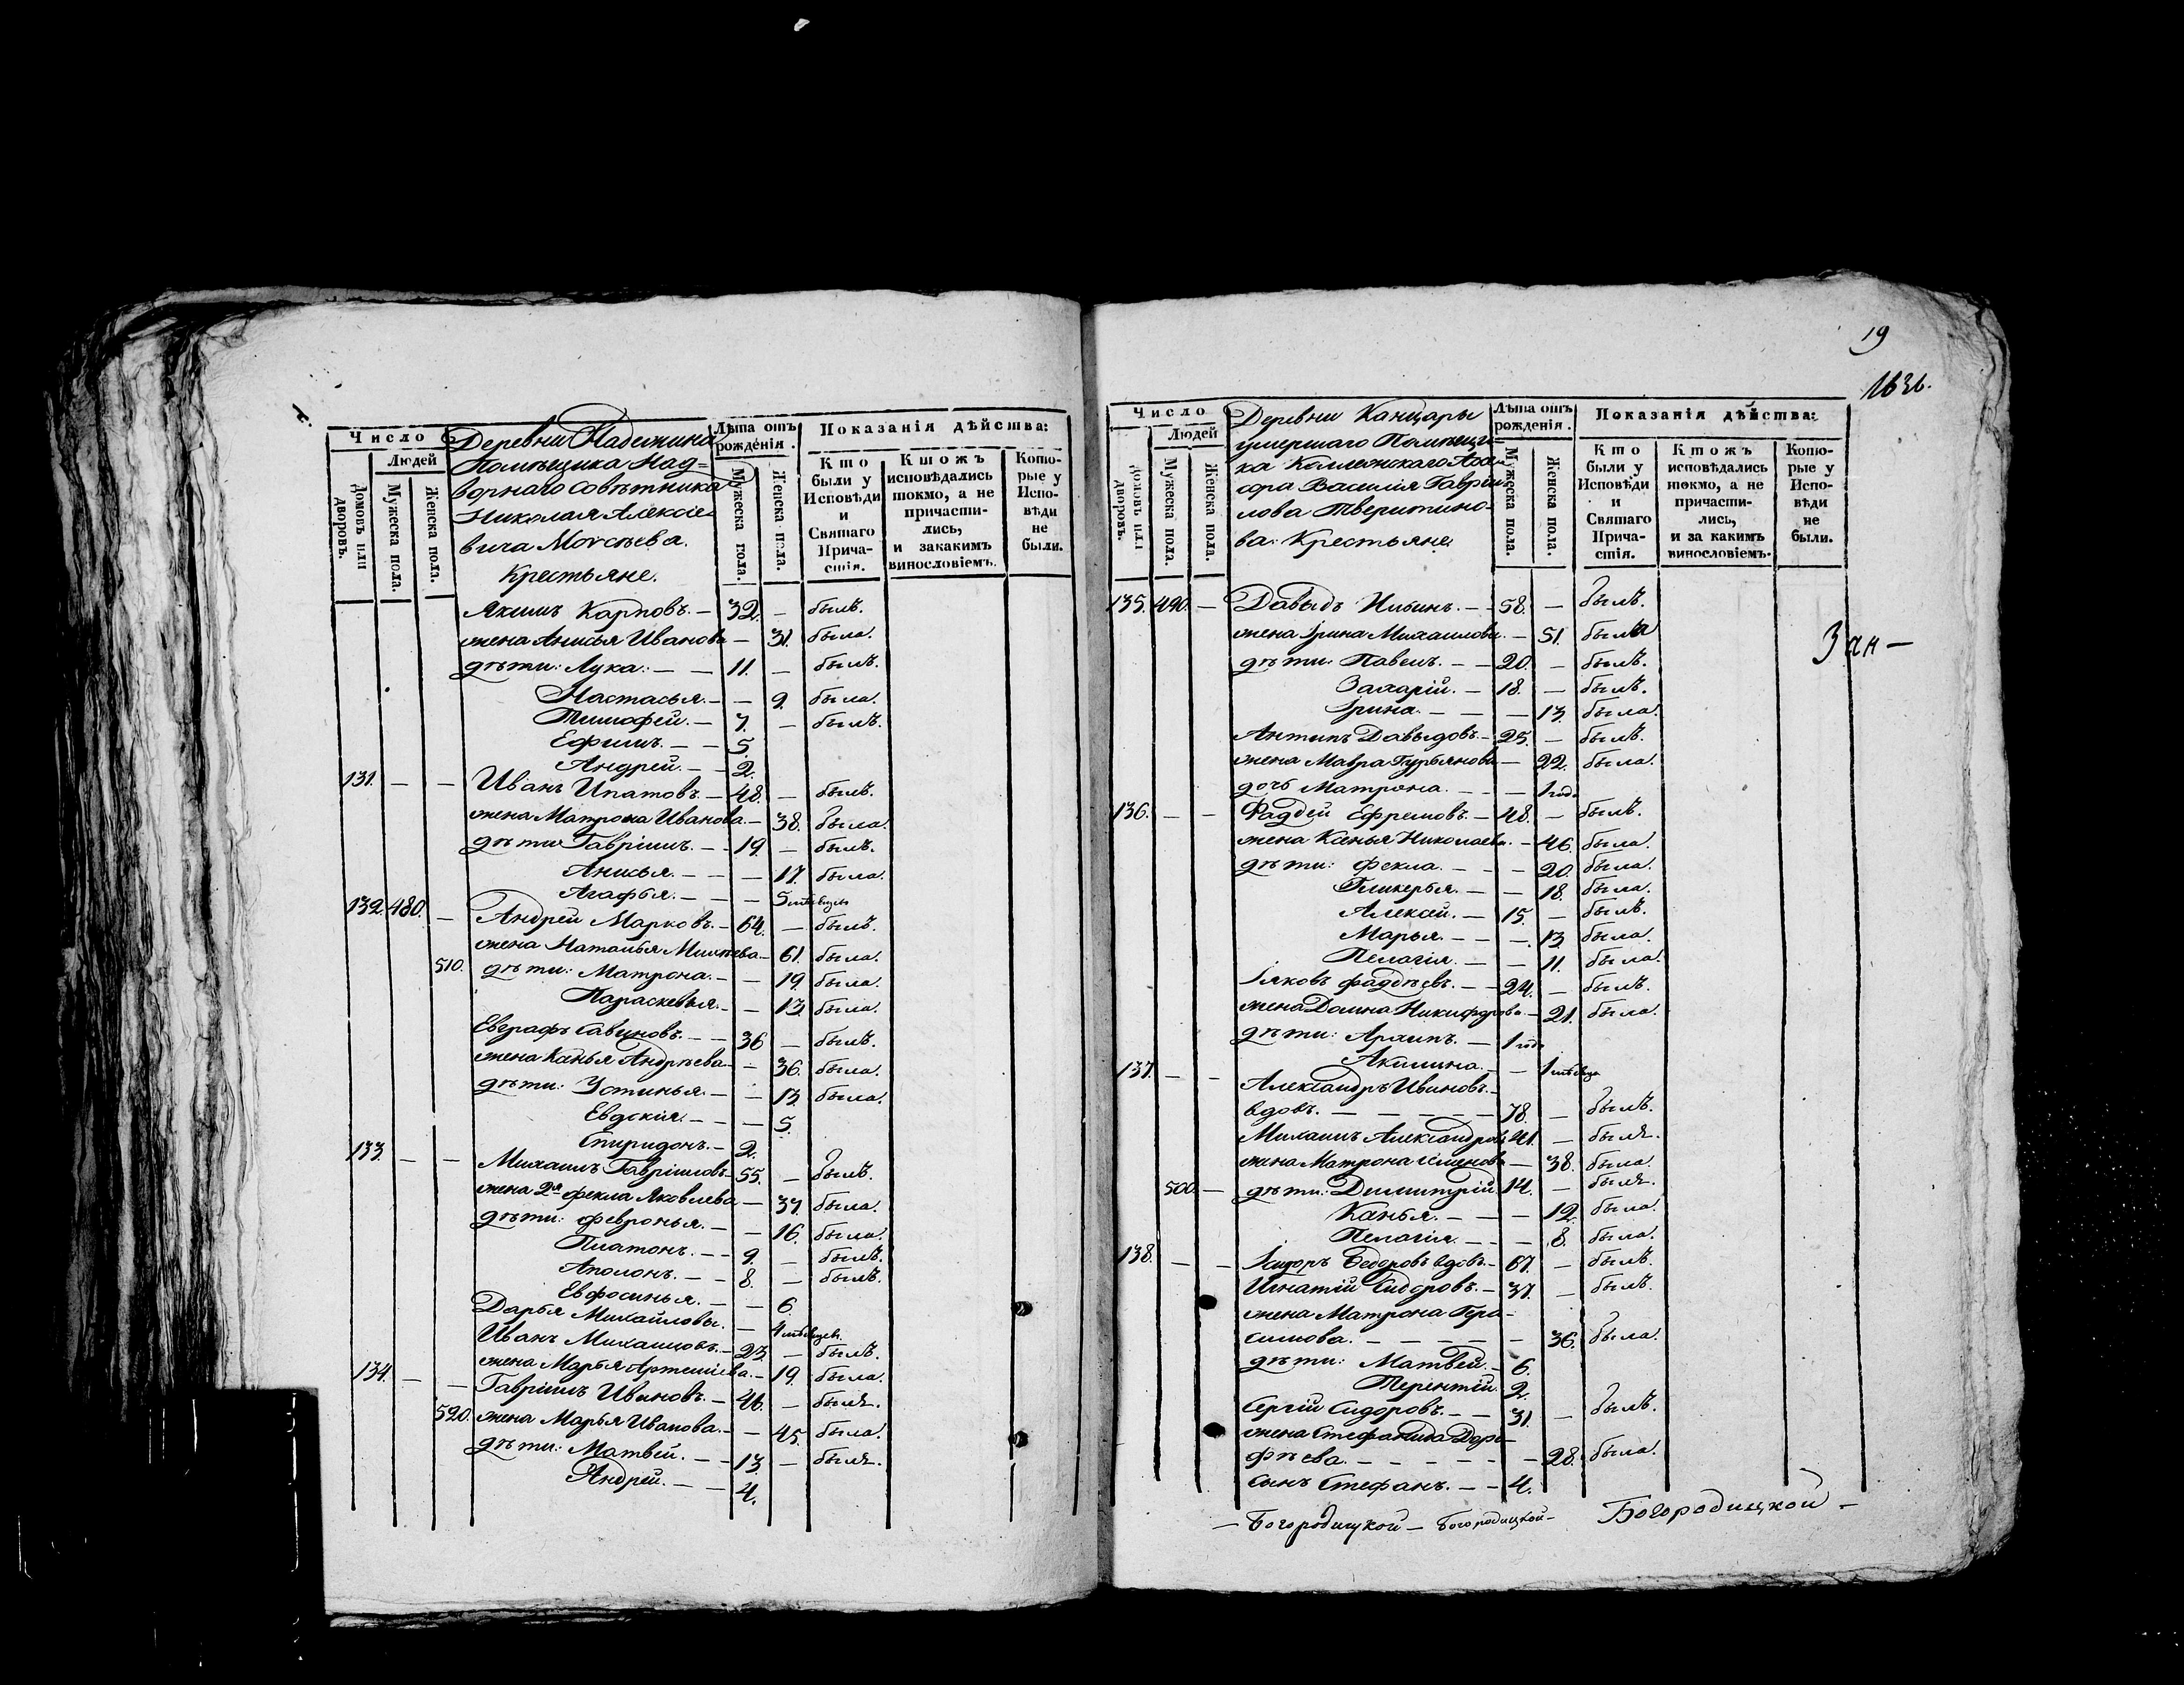 19
1636.
Число
Людей
Домовъ или дворовъ.
Мужеска пола.
Женска пола.
Деревни Надежина
Помѣщика Над=
ворнаго Совѣтника
Николая Алексѣе-
вича Моѵсѣева.
Крестьяне.
Лѣта отъ рожденія.
Мужеска пола.
Женска пола.
Показанія дѣйства:
Кто были у Исповѣди и Святаго Причастія.
Ктожъ исповѣдались токмо, а не причастились, и закакимъ винословіемъ.
Которые у Исповѣди не были.
Якимъ Карповъ. — 32. — былъ.
жена Анисья Иванова — 31. была.
дѣти: Лука. — — 11. — былъ.
Настасья. — — 9. была.
Тимофей. — 7. — былъ.
Ефимъ. — — 5.
Андрей. — — 2.
131. — — Иванъ Ипатовъ. — 48. — былъ.
жена Матрона Иванова. — 38. была.
дѣти Гавріилъ. — — 19. — былъ.
Анисья. — — — 17. была.
Агафья. — — — 5 мѣсяцъ
132. 480. — Андрей Марковъ. — 64. — былъ.
жена Наталья Михѣева — 61. была.
510. дѣти: Матрона. — — 19. была.
Параскевья. — — 13. была.
Евграфъ Савиновъ. — — 36 — былъ.
жена Ксенья Андрѣева — — 36. была.
дѣти: Устинья. — — 13. была.
Евдокія. — — — 5.
Спиридонъ. — 2.
133. — — Михаилъ Гавріиловъ — 55. — былъ.
жена 2я Фекла Яковлева — 37. была.
дѣти: Февронья. — — 16. была.
Платонъ. — — 9. — былъ.
Аполонъ. — — 8. — былъ.
Евфросинья. — — 6.
Дарья Михайлова. — 4 мѣсяцевъ.
Иванъ Михаиловъ. — 23. — былъ.
жена Марья Артемьева. — 19. была.
134. — — Гавріилъ Ивановъ. — 46. — былъ.
520. жена Марья Иванова. — — 45. была.
дѣти: Матвей. — — 13. — былъ.
Андрей. — — 4.
Число
Людей
Домовъ или дворовъ.
Мужеска пола.
Женска пола.
Деревни Канцары
умершаго Помѣщи=
ка Коллежскаго Асес
сора Василія Гаврии
лова Тверитино-
ва: Крестьяне
Лѣта отъ рожденія.
Мужеска пола.
Женска пола.
Показанія дѣйства:
Кто были у Исповѣди и Святаго Причастія.
Ктожъ исповѣдались токмо, а не причастились, и за какимъ винословіемъ.
Которые у Исповѣди не были.
135. 490. — Давыдъ Ильинъ. — — 58. — былъ.
жена Ірина Михаилова. — 51. была
Зан —
дѣти: Павелъ. — — 20. — былъ.
Захарій. — 18. — былъ.
Ірина. — — — 13. была.
Антипъ Давыдовъ. — 25. — былъ.
жена Мавра Гурьянова — 22. была.
дочь Матрона. — — — 1 годъ
136. — — Фаддей Ефремовъ. — 48. — былъ.
жена Ксенья Николаева. — 46. была.
дѣти: Фекла. — — — 20. была.
Гликерья. — — 18. была.
Алексей. — 15. — былъ.
Марья. — — — 13. была.
Пелагія. — — 11. была.
Іяковъ Фаддѣевъ. — — 24. — былъ.
жена Домна Никифорова — 21. была.
дѣти: Архипъ. — 1 годъ
Акилина. — — 1 мѣсяцъ
137. — — Александръ Ивановъ. —
вдовъ. — — — — — 78. — былъ.
Михаилъ Александровъ 41. — былъ.
жена Матрона Семенова — 38. была.
500. — дѣти: Димитрій 14. — былъ.
Ксенья. — — — 12. была.
Пелагія. — — — 8. была.
138. — — Ісидоръ Федоровъ вдовъ. — 67. — былъ.
Игнатій Сидоровъ. — 37. — былъ.
жена Матрона Гера-
симова. — — — — — 36. была.
дѣти: Матвей. — 6.
Терентій. 2.
Сергій Сидоровъ. — — 31. — былъ.
жена Стефанида Доро-
фѣева. — — — — — — 28. была.
сынъ Стефанъ. — — 4.
— Богородицкой — Богородицкой — Богородицкой —